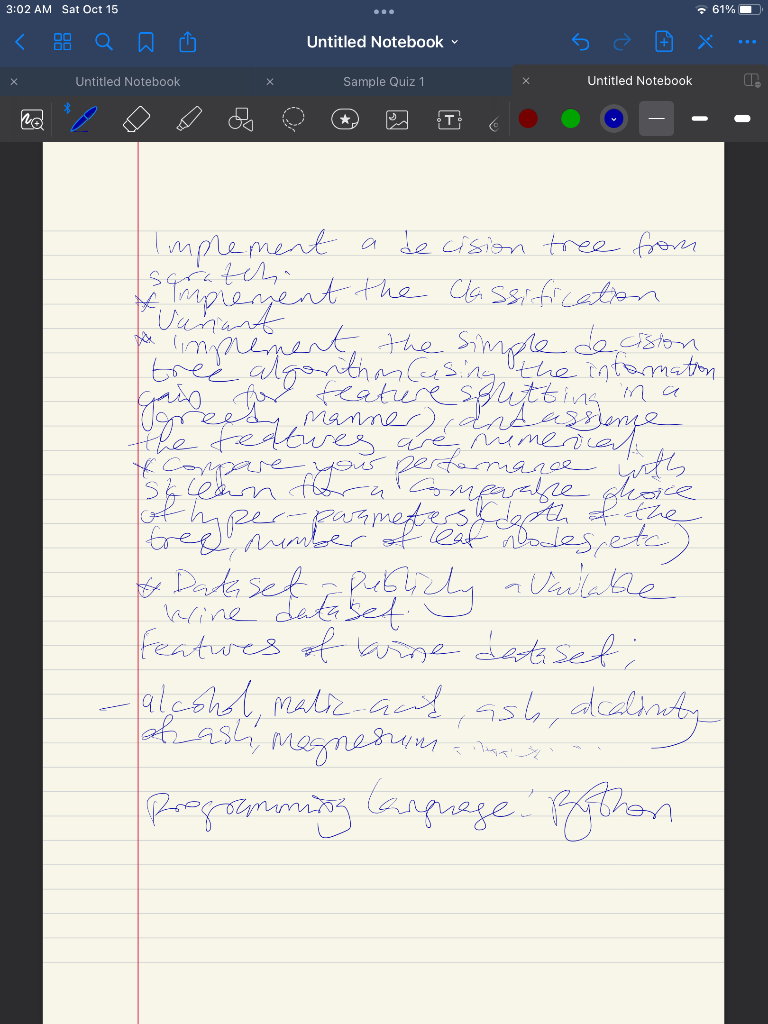 3:02 AM Sat Oct 15
61%
Untitled Notebook
Untitled Notebook
Sample Quiz 1
Untitled Notebook
Implement a decision tree from
scratch.
* Implement the Classification
Variant
* Implement the simple decision
tree algorithm (using the information
gain for feature splitting in a
greedy manner), and assume
the features are numerical
* Compare your performance with
sklearn for a comparable choice
of hyper-parameters (depth of the
tree, number of leaf nodes, etc)
* Dataset - Publicly available
wine dataset.
Features of wine dataset:
- alcohol, malic-acid, ash, alcalinity
of ash, magnesium
Programming Language: Python